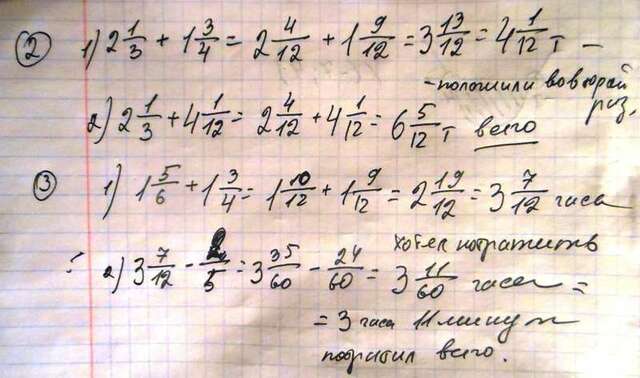 ② 1) 2 1/3 + 1 3/4 = 2 4/12 + 1 9/12 = 3 13/12 = 4 1/12 т –
- положили во второй раз.
2) 2 1/3 + 4 1/12 = 2 4/12 + 4 1/12 = 6 5/12 т всего
③ 1) 1 5/6 + 1 3/4 = 1 10/12 + 1 9/12 = 2 19/12 = 3 7/12 часа
хотел потратить
2) 3 7/12 - 2/5 = 3 35/60 - 24/60 = 3 11/60 часа =
= 3 часа 11 минут
потратил всего.